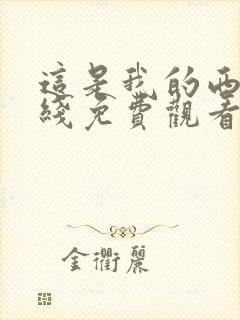 這是我的西
綫免費觀看
金衢麗